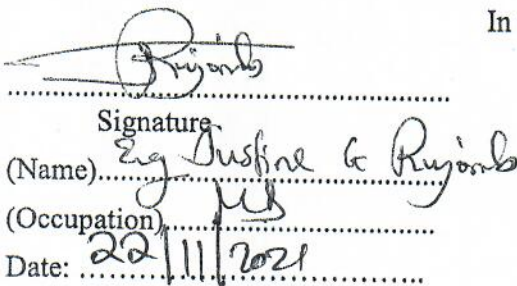 In
Rujomb
Signature
(Name) Eng Justine G Rujomb
(Occupation) MD
Date: 22/11/2021